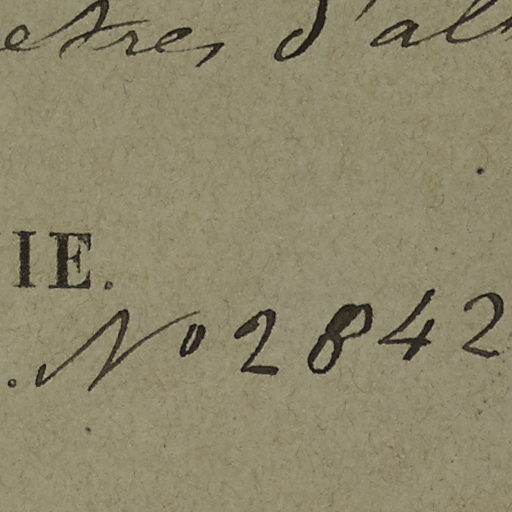 etres d'alt
IE.
. No 2842